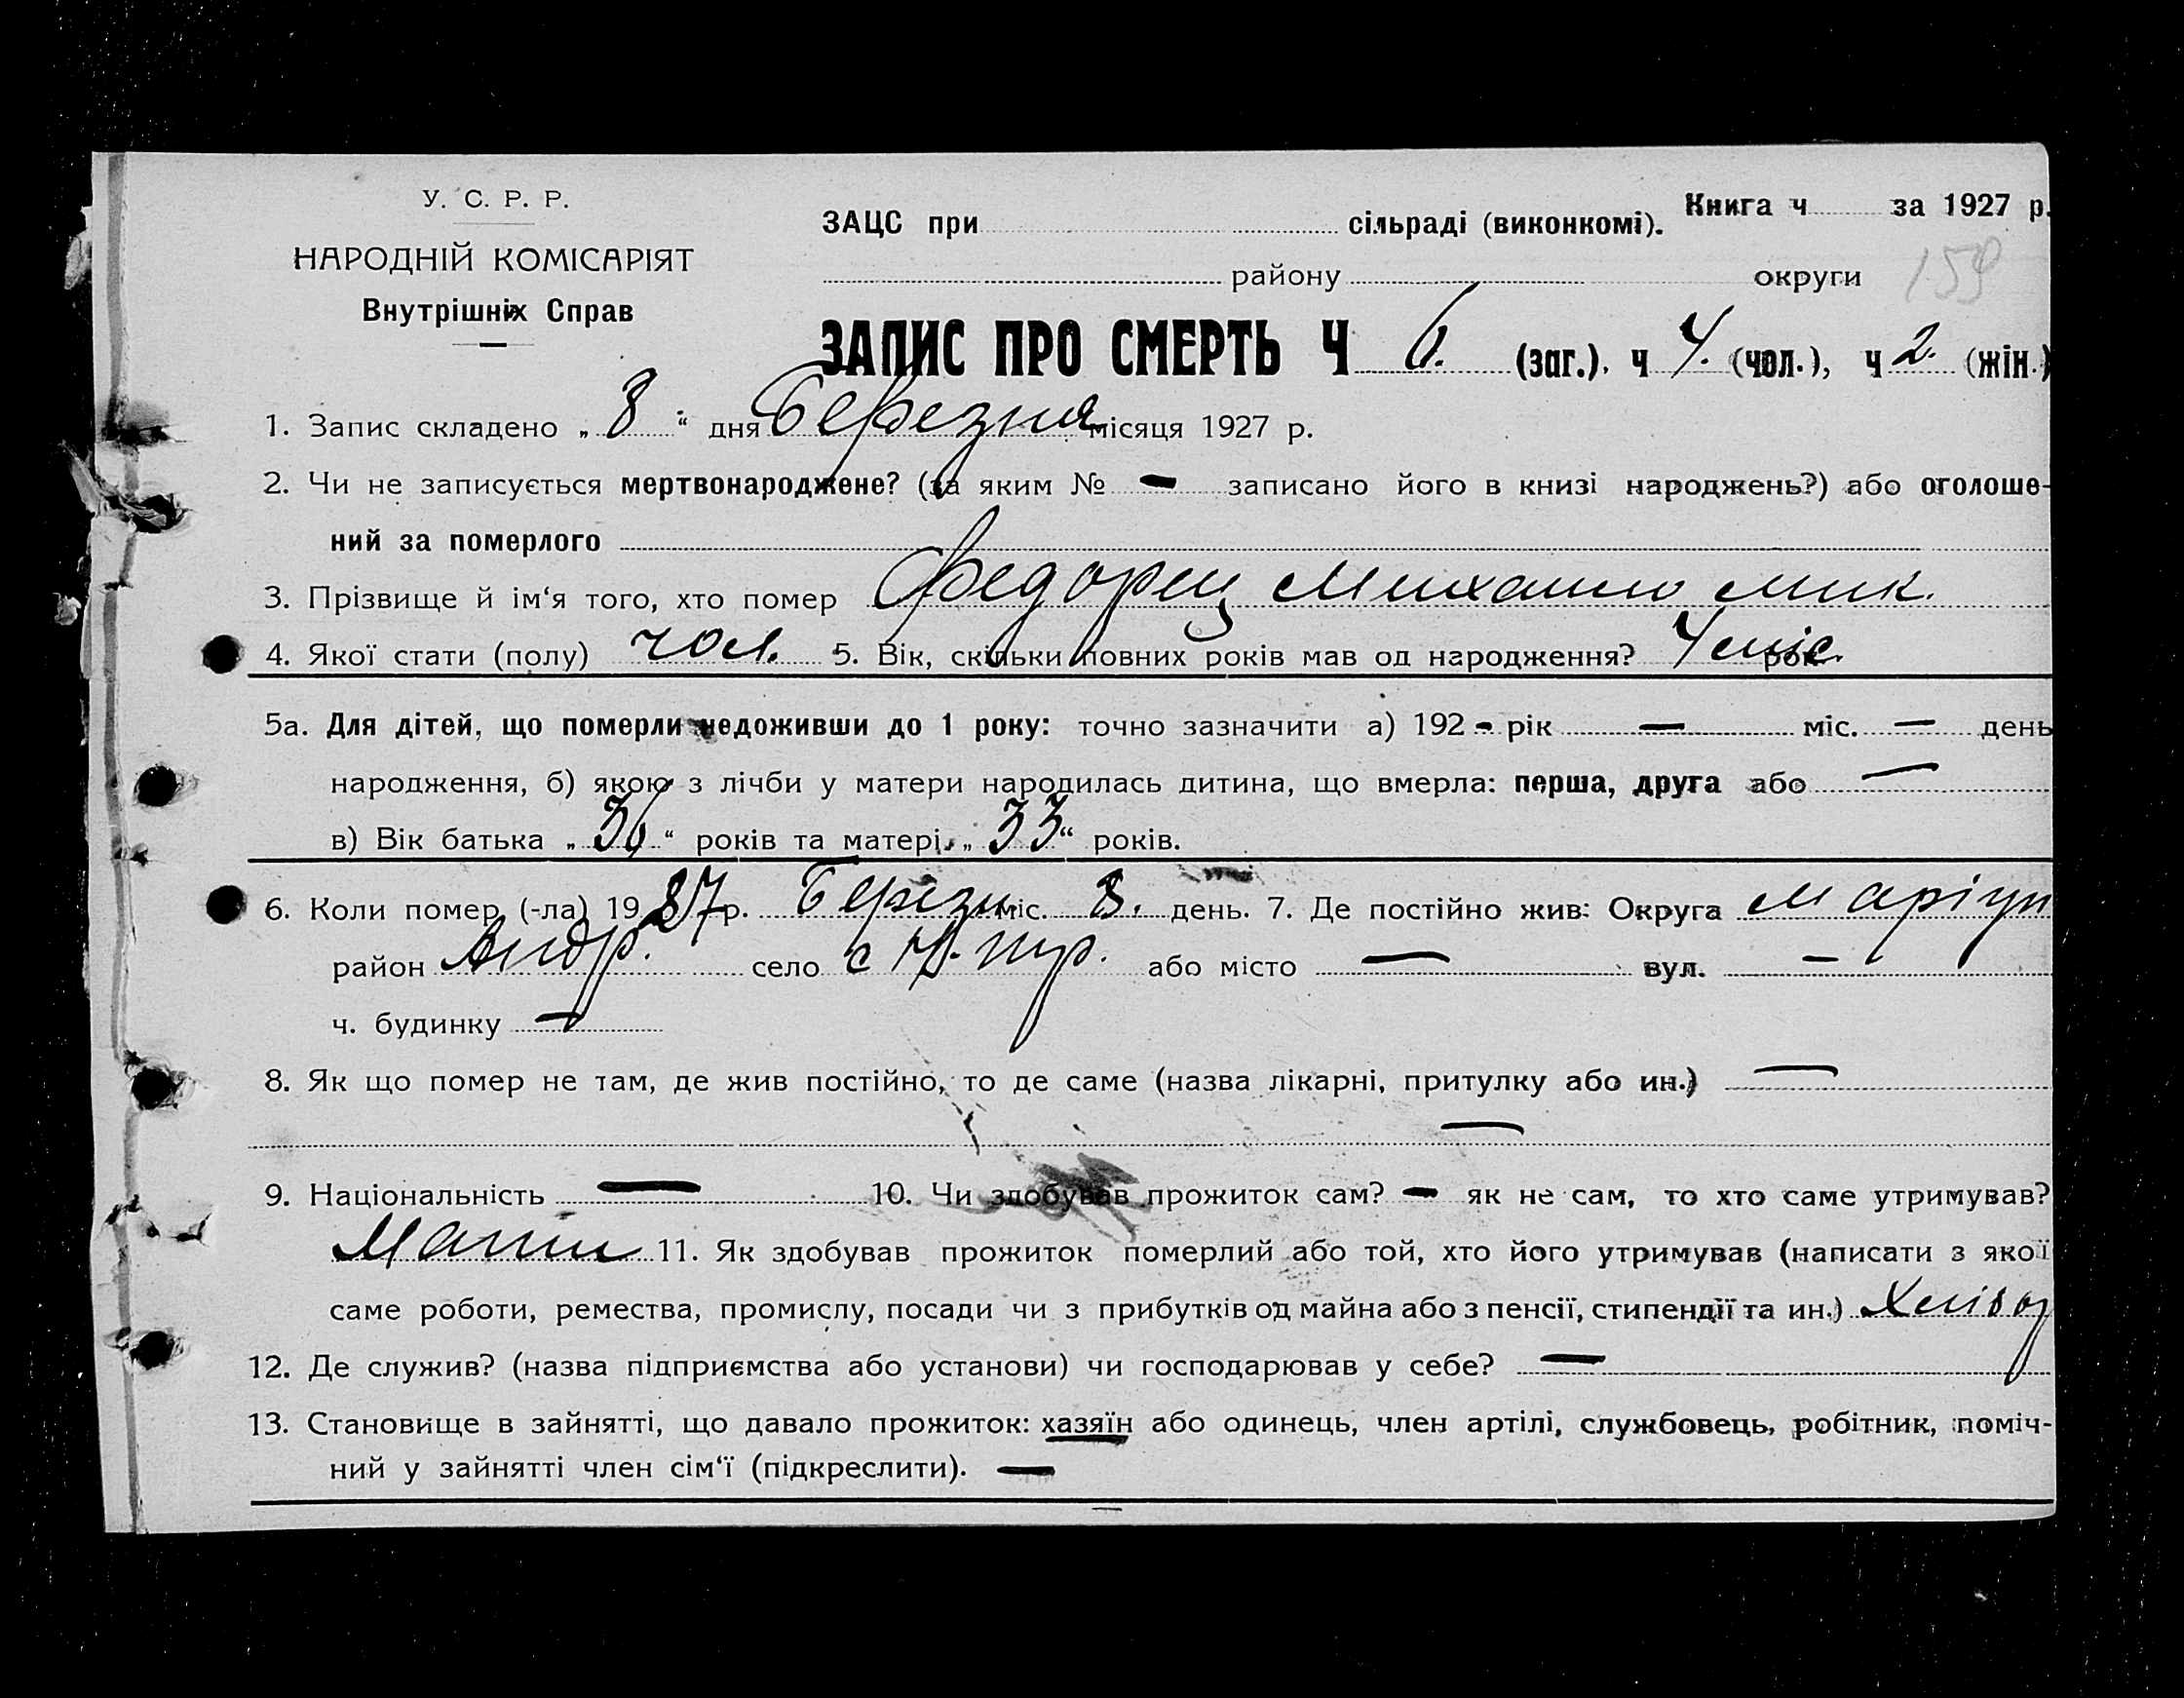 У. С. Р. Р.
НАРОДНІЙ КОМІСАРІЯТ
Внутрішніх Справ
Книга ч за 1927 р.
ЗАЦС при сільраді (виконкомі).
району округи 159
ЗАПИС ПРО СМЕРТЬ Ч 6. (заг.). ч 4. (чол.), ч 2. (жін.)
1. Запис складено „ 8 “ дня Березня місяця 1927 р.
2. Чи не записується мертвонароджене? (за яким № — записано його в книзі народжень?) або оголоше-
ний за померлого
3. Прізвище й ім‘я того, хто помер Федорец Михаило Мик.
4. Якої стати (полу) чол. 5. Вік, скільки повних років мав од народження? 4 міс. рок.
5а. Для дітей, що померли недоживши до 1 року: точно зазначити а) 192 - рік — міс. — день
народження, б) якою з лічби у матери народилась дитина, що вмерла: перша, друга або —
в) Вік батька „ 36 “ років та матері „ 33 “ років.
6. Коли помер (-ла) 1927 р. Березн міс. 8. день. 7. Де постійно жив: Округа Маріуп
район Андр. село або місто — вул. —
ч. будинку —
8. Як що помер не там, де жив постійно, то де саме (назва лікарні, притулку або ин.) —
—
9. Національність — 10. Чи здобував прожиток сам? — як не сам, то хто саме утримував?
11. Як здобував прожиток померлий або той, хто його утримував (написати з якої
саме роботи, ремества, промислу, посади чи з прибутків од майна або з пенсії, стипендії та ин.) Хлібор
12. Де служив? (назва підприємства або установи) чи господарював у себе? —
13. Становище в зайнятті, що давало прожиток: хазяїн або одинець, член артілі, службовець, робітник, поміч-
ний у зайнятті член сім‘ї (підкреслити). —